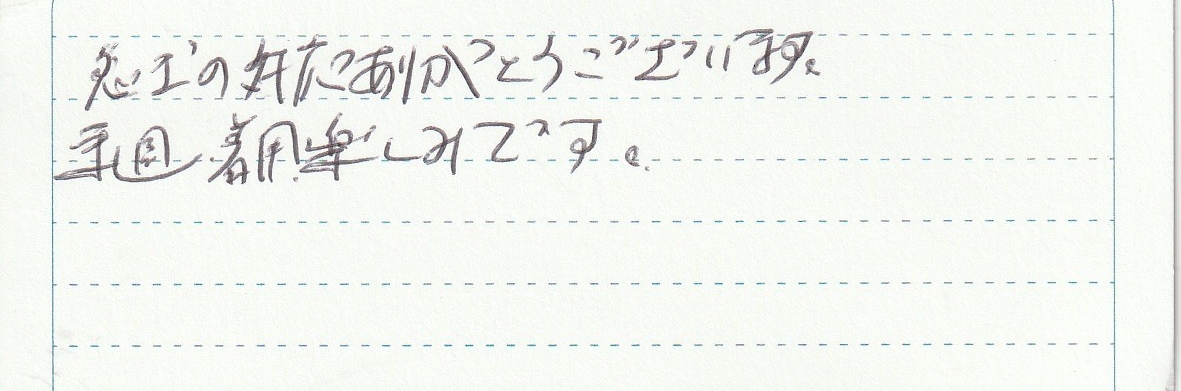 急ぎの対応ありがとうございます。
来週着用楽しみです。